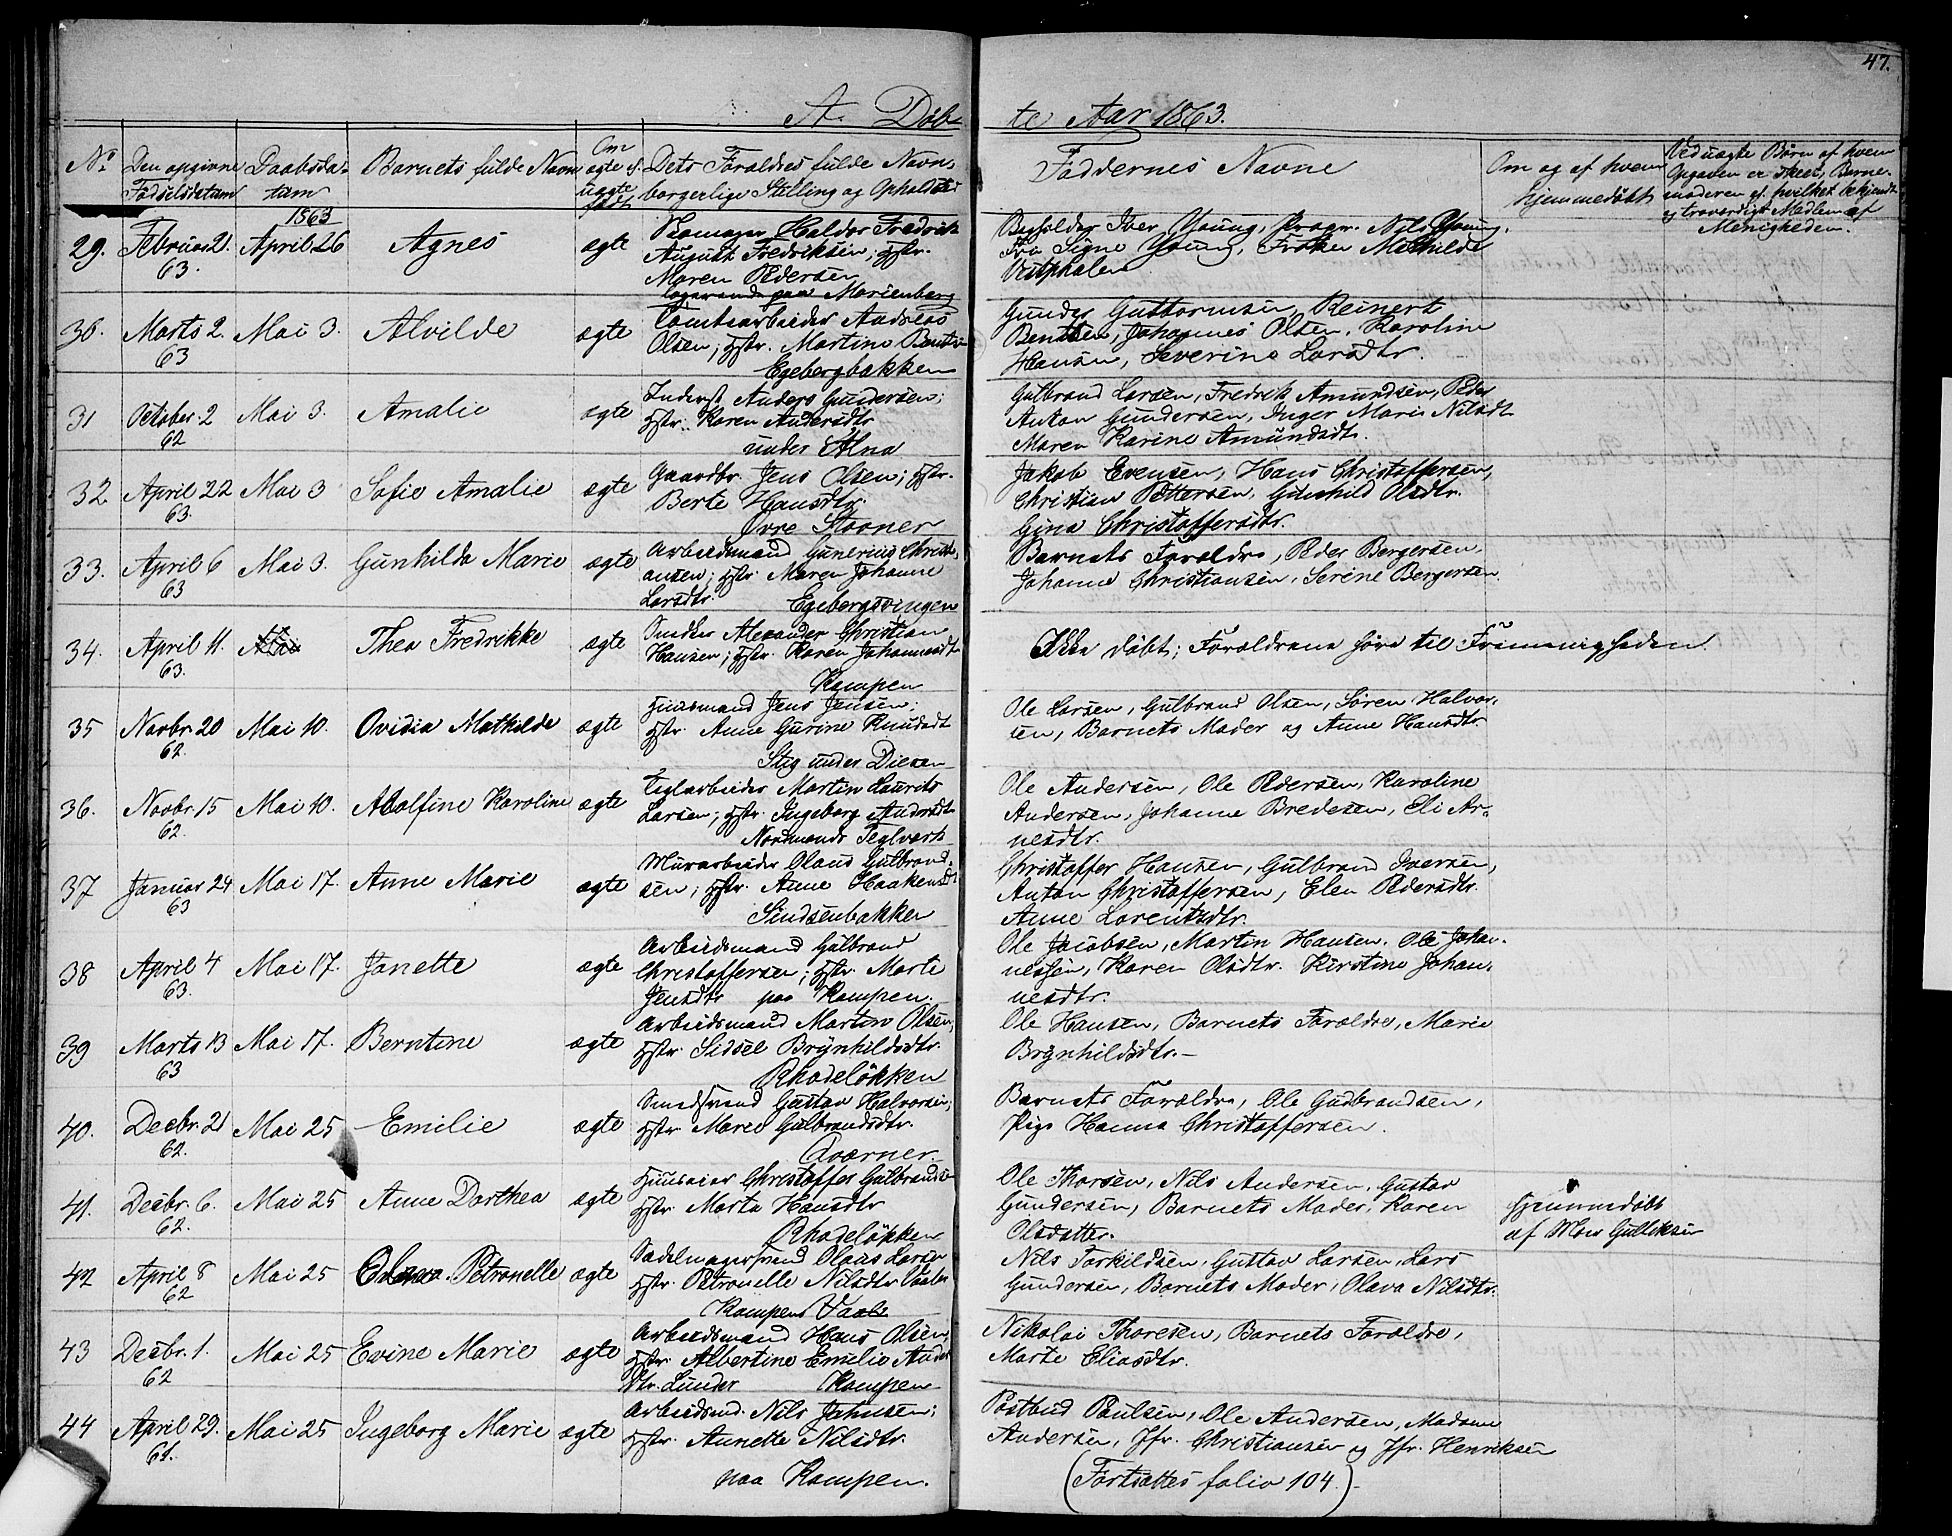 47.
A. Döb- te Aar 1863.
No
Den opgivne Fødselsdatum
Daabsda-
tum
Barnets fulde Navn
Om
ægte el.
uægte
født
Dets Forældres fulde Navn,
borgerlige Stilling og Opholdsted
Faddernes Navne
Om og af hvem
hjemmedøbt
Ved uægte Børn af hvem
Opgaven er skeet, Barne-
moderen el. hvilket bekjendt
og troværdigt Medlem af
Menigheden.
1863
29. Februar 21. 63. April 26 Agnes ægte
Skomager Haldor Fredrik
August Fredriksen; Hstr.
Maren Pedersen
logerende paa Marienberg
Nils Young,
Fru Signe Young, Frøken Mathilde
Vestphalen
30. Marts 2. 63 Mai 3. Alvilde ægte
Tomtearbeider Andreas
Olsen; Hstr. Martine Bents
Egebergbakken
Gunder Guttormsen, Reinert
Bentsen, Johannes Olsen, Karoline
Hansen, Severine Larsdtr.
31 October 2 62 Mai 3. Amalie ægte
Inderst Anders Gundersen;
Hstr. Karen Andersdtr
under Alna
Gulbrand Larsen, Fredrik Amundsen, Peder
Anton Gundersen, Inger Marie Nilsdt
Maren Karine Amundsdt.
32 April 22 63. Mai 3 Sofie Amalie ægte
Gaardbr. Jens Olsen; Hstr.
Berte Hansdtr.
Øvre Stovner
Jakob Evensen, Hans Christoffersen,
Christian Pettersen, Gunhild Olsdtr.
Gina Christoffersdtr.
33. April 6 63 Mai 3. Gunhilda Marie ægte
Arbeidsmand Gunerius Christi-
ansen; Hstr. Maren Johanne
Larsdtr. Egebergsvingen
Barnets Forældre, Peder Bergersen,
Johanne Christiansen, Serine Bergersen.
34. April 11. 63. Mai Thea Fredrikke ægte
Smed Alexander Christian
Hansen; Hstr. Karen Johannesdt
Kampen
Ikke døbt; Forældrene høre til Frimenigheden.
35 Novbr. 20 62. Mai 10. Ovidia Mathilde ægte
Huusmand Jens Jensen;
Hstr. Anne Gurine Knudsdt
Stig under Disen
Ole Larsen, Gulbrand Olsen, Søren Halvor-
sen, Barnets Moder og Anne Hansdtr.
36. Novbr. 15 62. Mai 10. Adolfine Karoline ægte
Teglarbeider Martin Laurits
Larsen; Hstr. Ingeborg Andersdt
Nordmands Teglværk
Ole Andersen, Ole Pedersen, Karoline
Andersen, Johanne Bredesen, Eli Ar-
nesdtr.
37 Januar 24 63 Mai 17. Anne Marie ægte
Murarbeider Olaus Gulbrand-
sen; Hstr. Anne Haakensdt
Sindsenbakken
Christoffer Hansen, Gulbrand Iversen,
Anton Christoffersen, Elen Pedersdtr.
Anne Lorentsdtr.
38 April 4 63. Mai 17. Janette ægte
Arbeidsmand Gulbrand
Christoffersen; Hstr. Marte
Jensdtr paa Kampen.
Ole Jacobsen, Martin Hansen, Ole Johan-
nessen, Karen Olsdtr. Kirstine Johan-
nesdtr.
39 Marts 13 63 Mai 17. Berntine ægte
Arbeidsmand Martin Olsen;
Hstr. Sidsel Brynhildsdtr.
Rhodeløkken
Ole Hansen, Barnets Forældre, Marie
Brynhildsdtr.-
40. Decbr. 21 62. Mai 25 Emilie ægte
Smedsvend Gustav Halvorsen;
Hstr. Maren Gulbrandsdtr.
Qværner
Barnets Forældre, Ole Gudbrandsen,
Pige Hanna Christoffersen.
41. Decbr. 6. 62. Mai 25 Anne Dorthea ægte
Huuseier Christoffer Gulbrands
Hstr. Marta Hansdtr
Rhodeløkken
Ole Thorsen, Nils Andersen, Gustav
Gundersen, Barnets Moder, Karen
Olsdatter.
Hjemmedøbt
af Moer Gulliksen
42 April 8 62 Mai 25 Petronelle ægte
Sadelmagersvend Olaus Larsen
Hstr. Petronelle Nilsdtr.
Kampen Vaale
Nils Torkildsen, Gustav Larsen, Lars
Gundersen, Barnets Moder, Olava Nilsdtr.
43 Decbr. 1. 62 Mai 25 Evine Marie ægte
Arbeidsmand Hans Olsen,
Hstr. Albertine Emilie Anders
Dtr. Lunder Kampen
Nikolai Thoresen, Barnets Forældre,
Marte Eliasdtr.
44 April 29. 61. Mai 25 Ingeborg Marie ægte
Arbeidsmd. Nils Johnsen;
Hstr. Annette Nilsdtr.
paa Kampen.
Postbud Poulsen, Ole Andersen, Madame
Andersen, Jfr. Christiansen og Jfr. Henriksen
(Fortsættes folio 104)-